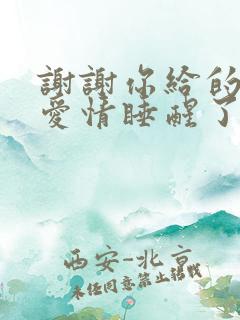 謝謝你給的
愛情睡醒了
西安-北京
未任同意禁止轉載